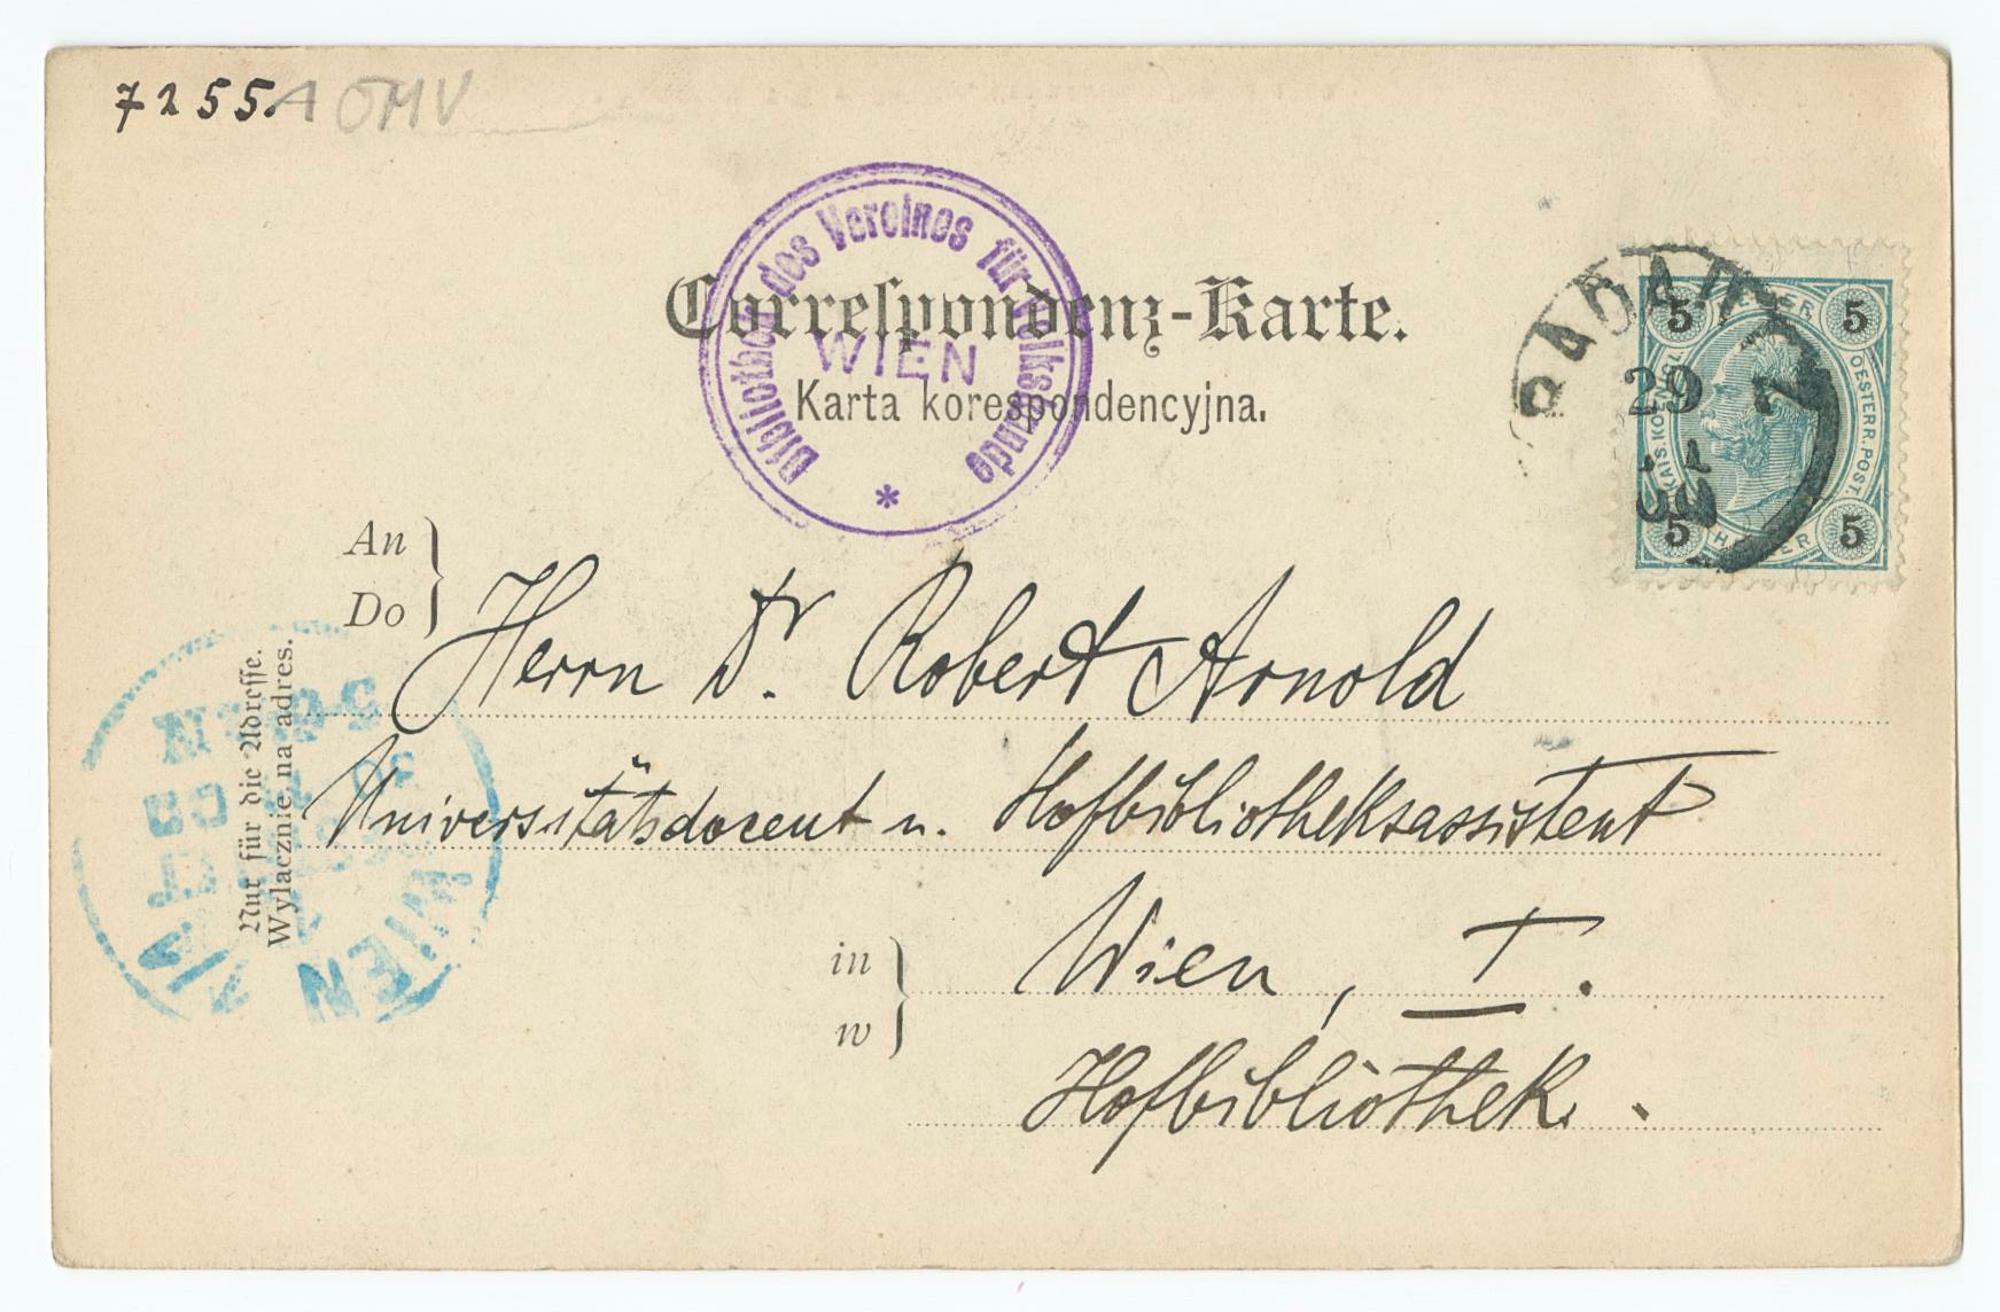 7255.A ÖMV
Bibliothek des Vereines für Volkskunde
WIEN
*
Correspondenz-Karte.
Karta korespondencyjna.
5 HELLER 5
KAIS. KOENIGL. OESTERR. POST.
5 HELLER 5
29 7
An
Do
Herrn Dr. Robert Arnold
Universitätsdocent u. Hofbibliotheksassistent
in
w
Wien, I.
Hofbibliothek.
Nur für die Adresse.
Wyłacznie na adres.
WIEN